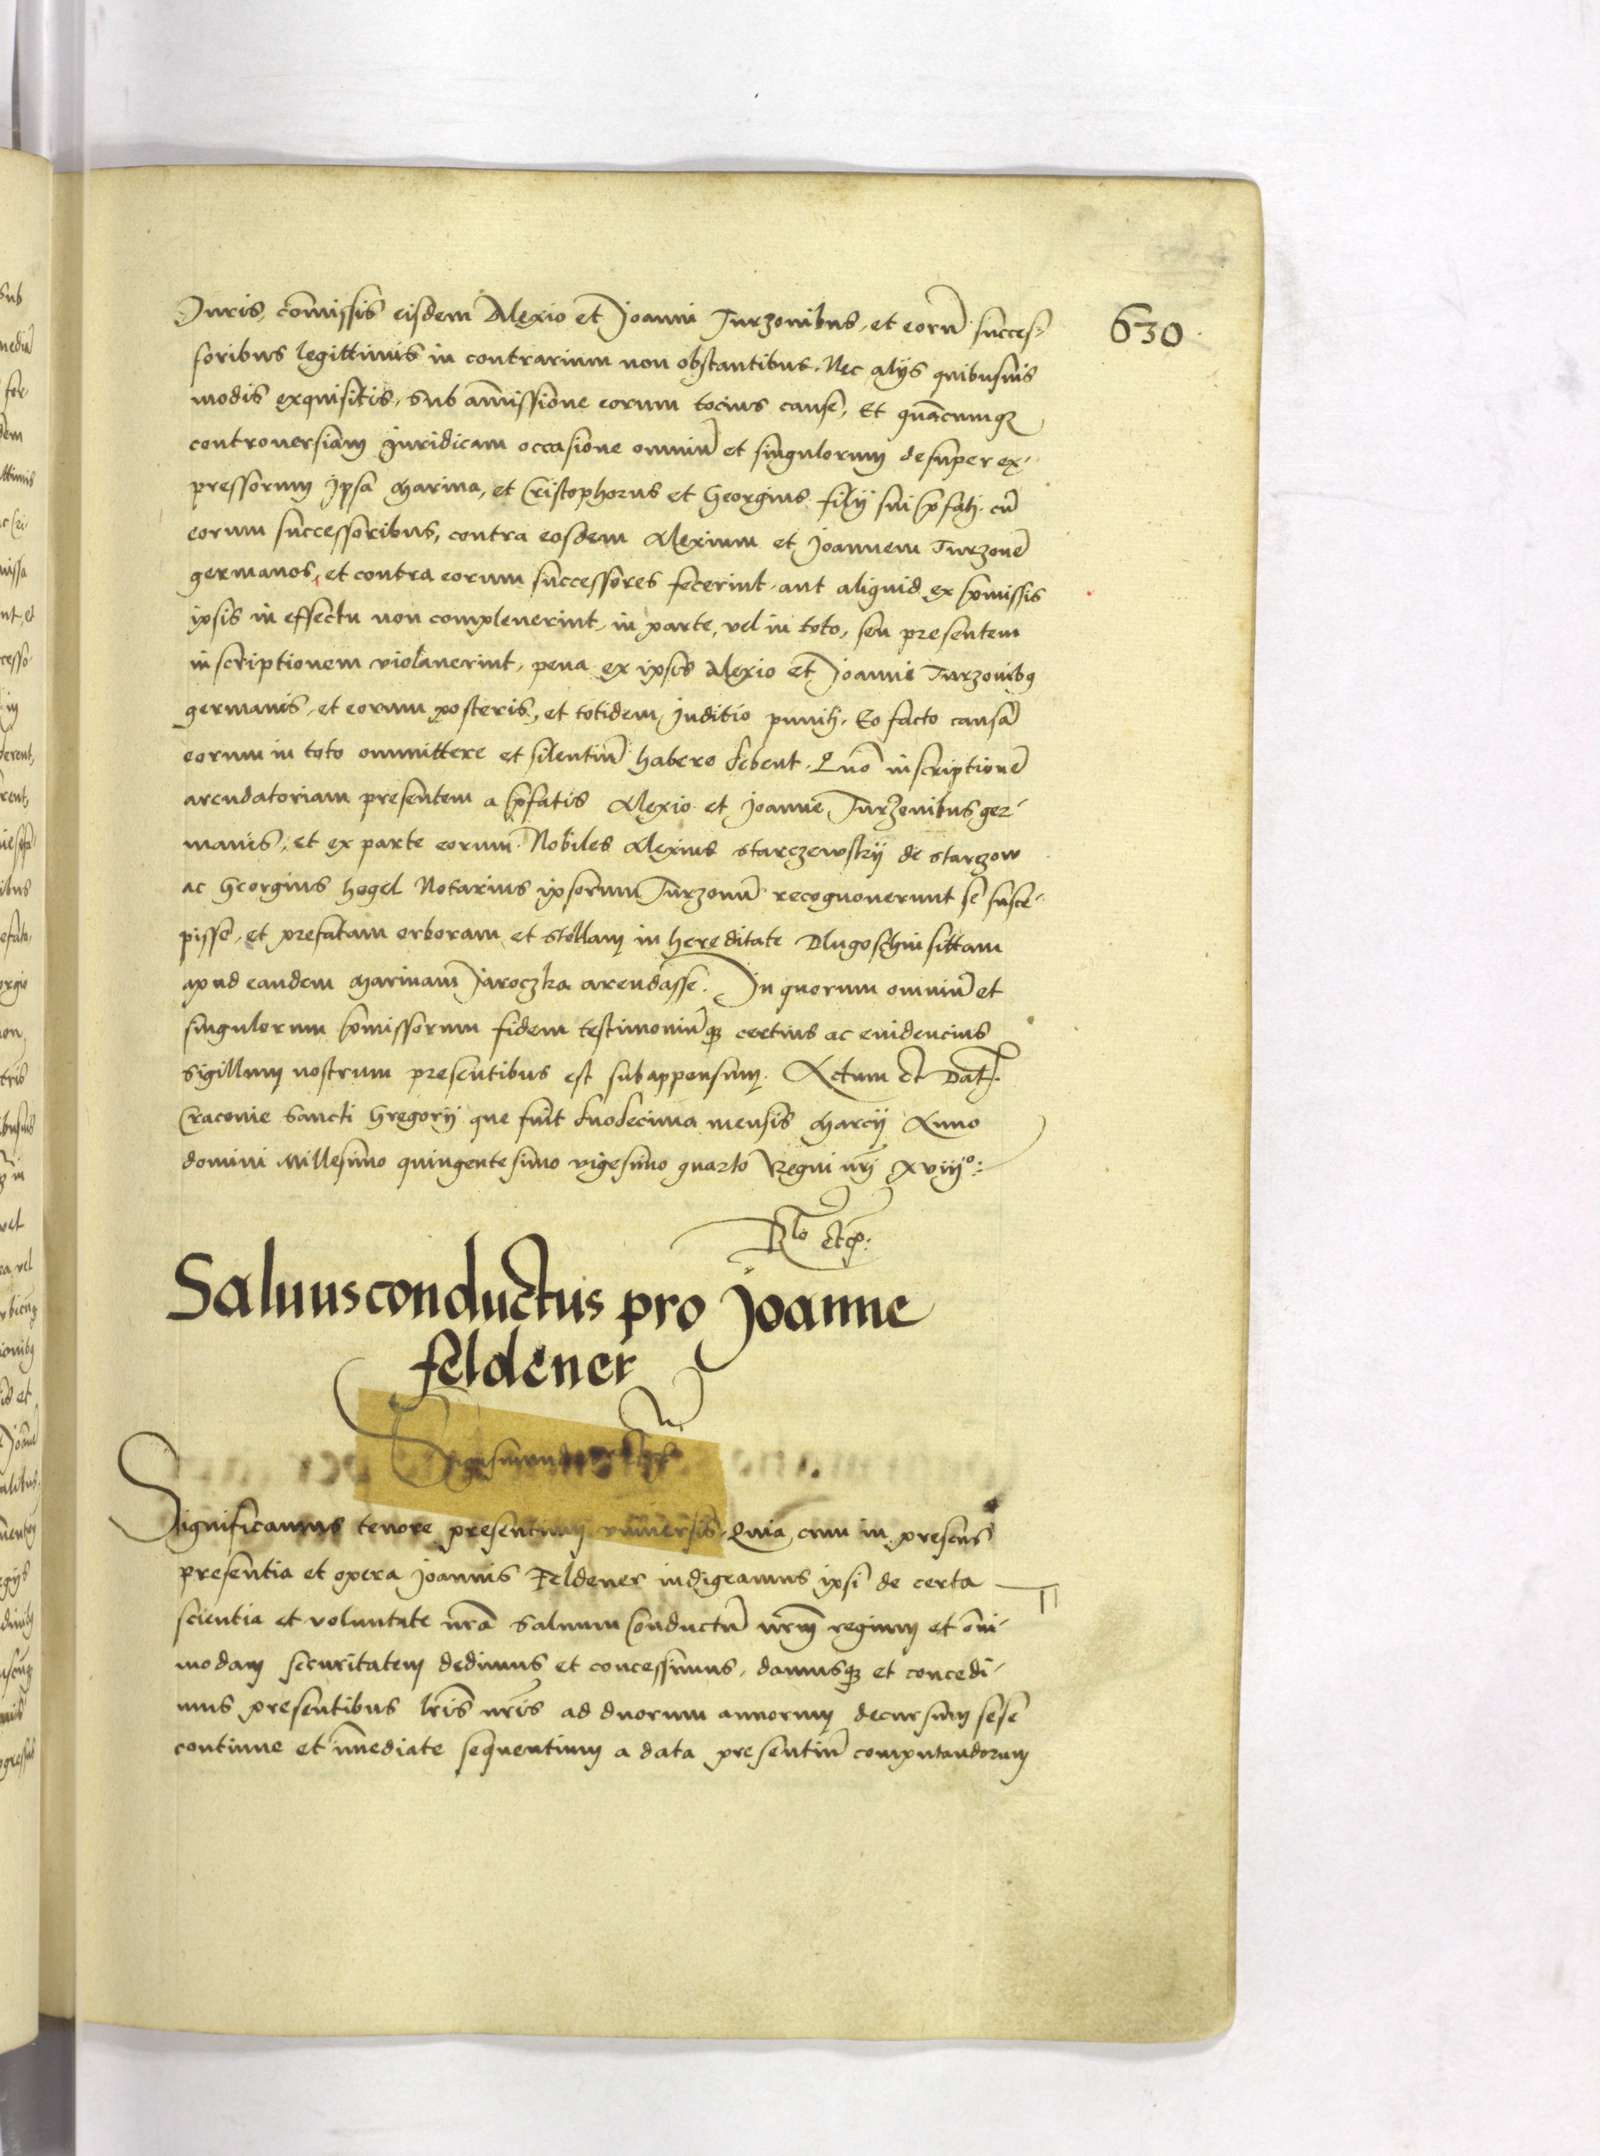 630
Juris, com̄issis eisdem Alexio et Joanni Turzonibus, et eorū succes-
soribus legittimis in contrarium non obstantibus. Nec alijs quibusuis
modis exquisitis, sub am̄issione eorum tocius cause, Et quācumqȝ
controuersiam Juridicam occasione omniū et singulorum desuper ex-
pressorum Ipsa Marina, et Cristophorus et Georgius filij sui p̄fati cū
eorum successoribus, contra eosdem Alexium et Joannem Turzonē
germanos, et contra eorum successores fecerint aut aliquid ex p̄missis
ipsis in effectu non compleuerint, in parte, vel in toto, seu presentem
inscriptionem violauerint, pena ex ipsis Alexio et Joanni Turzonibꝫ
germanis, et eorum posteris, et totidem Juditio puniti. Eo facto causā
eorum in toto ommittere et silentiū habere debent. Quō inscriptionē
arendatoriam presentem a p̄fatis Alexio et Joanne Turzonibus ger-
manis, et ex parte eorum Nobiles Alexius Starczewskij de Starczow
ac Georgius hegel Notarius ipsorum Turzonū recognouerunt se susce-
pisse, et prefatam orboram et stollam in hereditate Dlugoschin sittam
apud eandem Marinam Jaroczka arendasse. In quorum omniū et
singulorum p̄missorum fidem testimoniūqȝ certius ac euidencius
sigillum nostrum presentibus est subappensum. Actum et Dat.
Cracouie Sancti Gregorij que fuit duodecima mensis Marcij Anno
domini Millesimo quingentesimo vigesimo quarto Regni nr̄i xviijº
R̄lo etc̄.
Saluusconductus pro Joanne
feldener
Sigismundus etc.
Significamus tenore presentium vniuersis. Quia cum in presens
presentia et opera Joannis Feldener indigeamus ipsi de certa
scientia et voluntate nr̄a saluum conductū nr̄m regium et ōni-
modam securitatem dedimus et concessimus, damusqȝ et concedi-
mus presentibus lr̄is nr̄is ad duorum annorum decursum sese
continue et im̄ediate sequentium a data presentiū computandorum